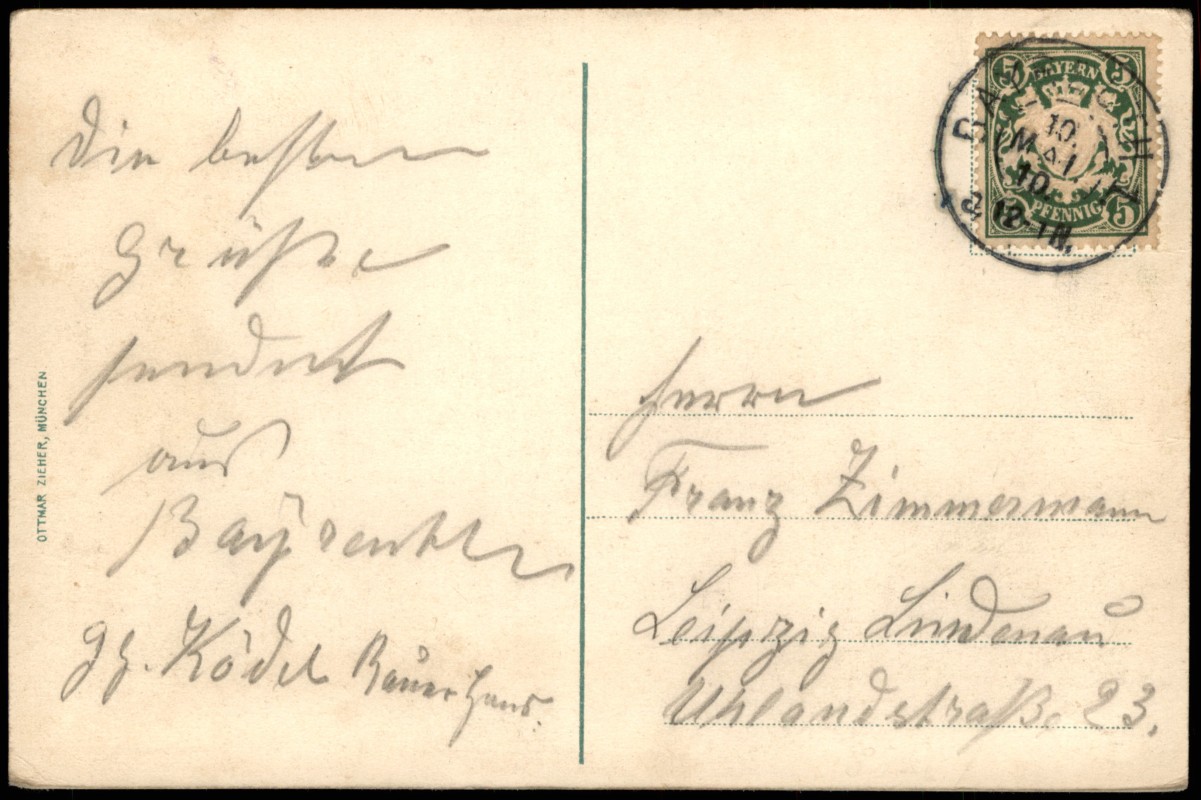 Die besten
Grüße
sendet
aus
Bayreuth
Gg. Ködel
OTTMAR ZIEHER, MÜNCHEN
5 BAYERN 5
5 PFENNIG 5
10.
MAI
10.
Herrn
Franz Zimmermann
Leipzig Lindenau
Uhlandstraße 23.